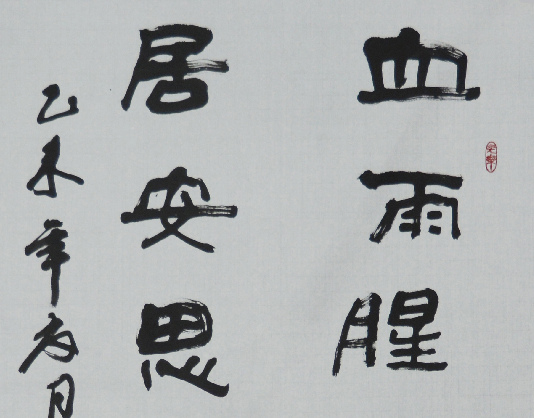 血雨腥
居安思
乙未年